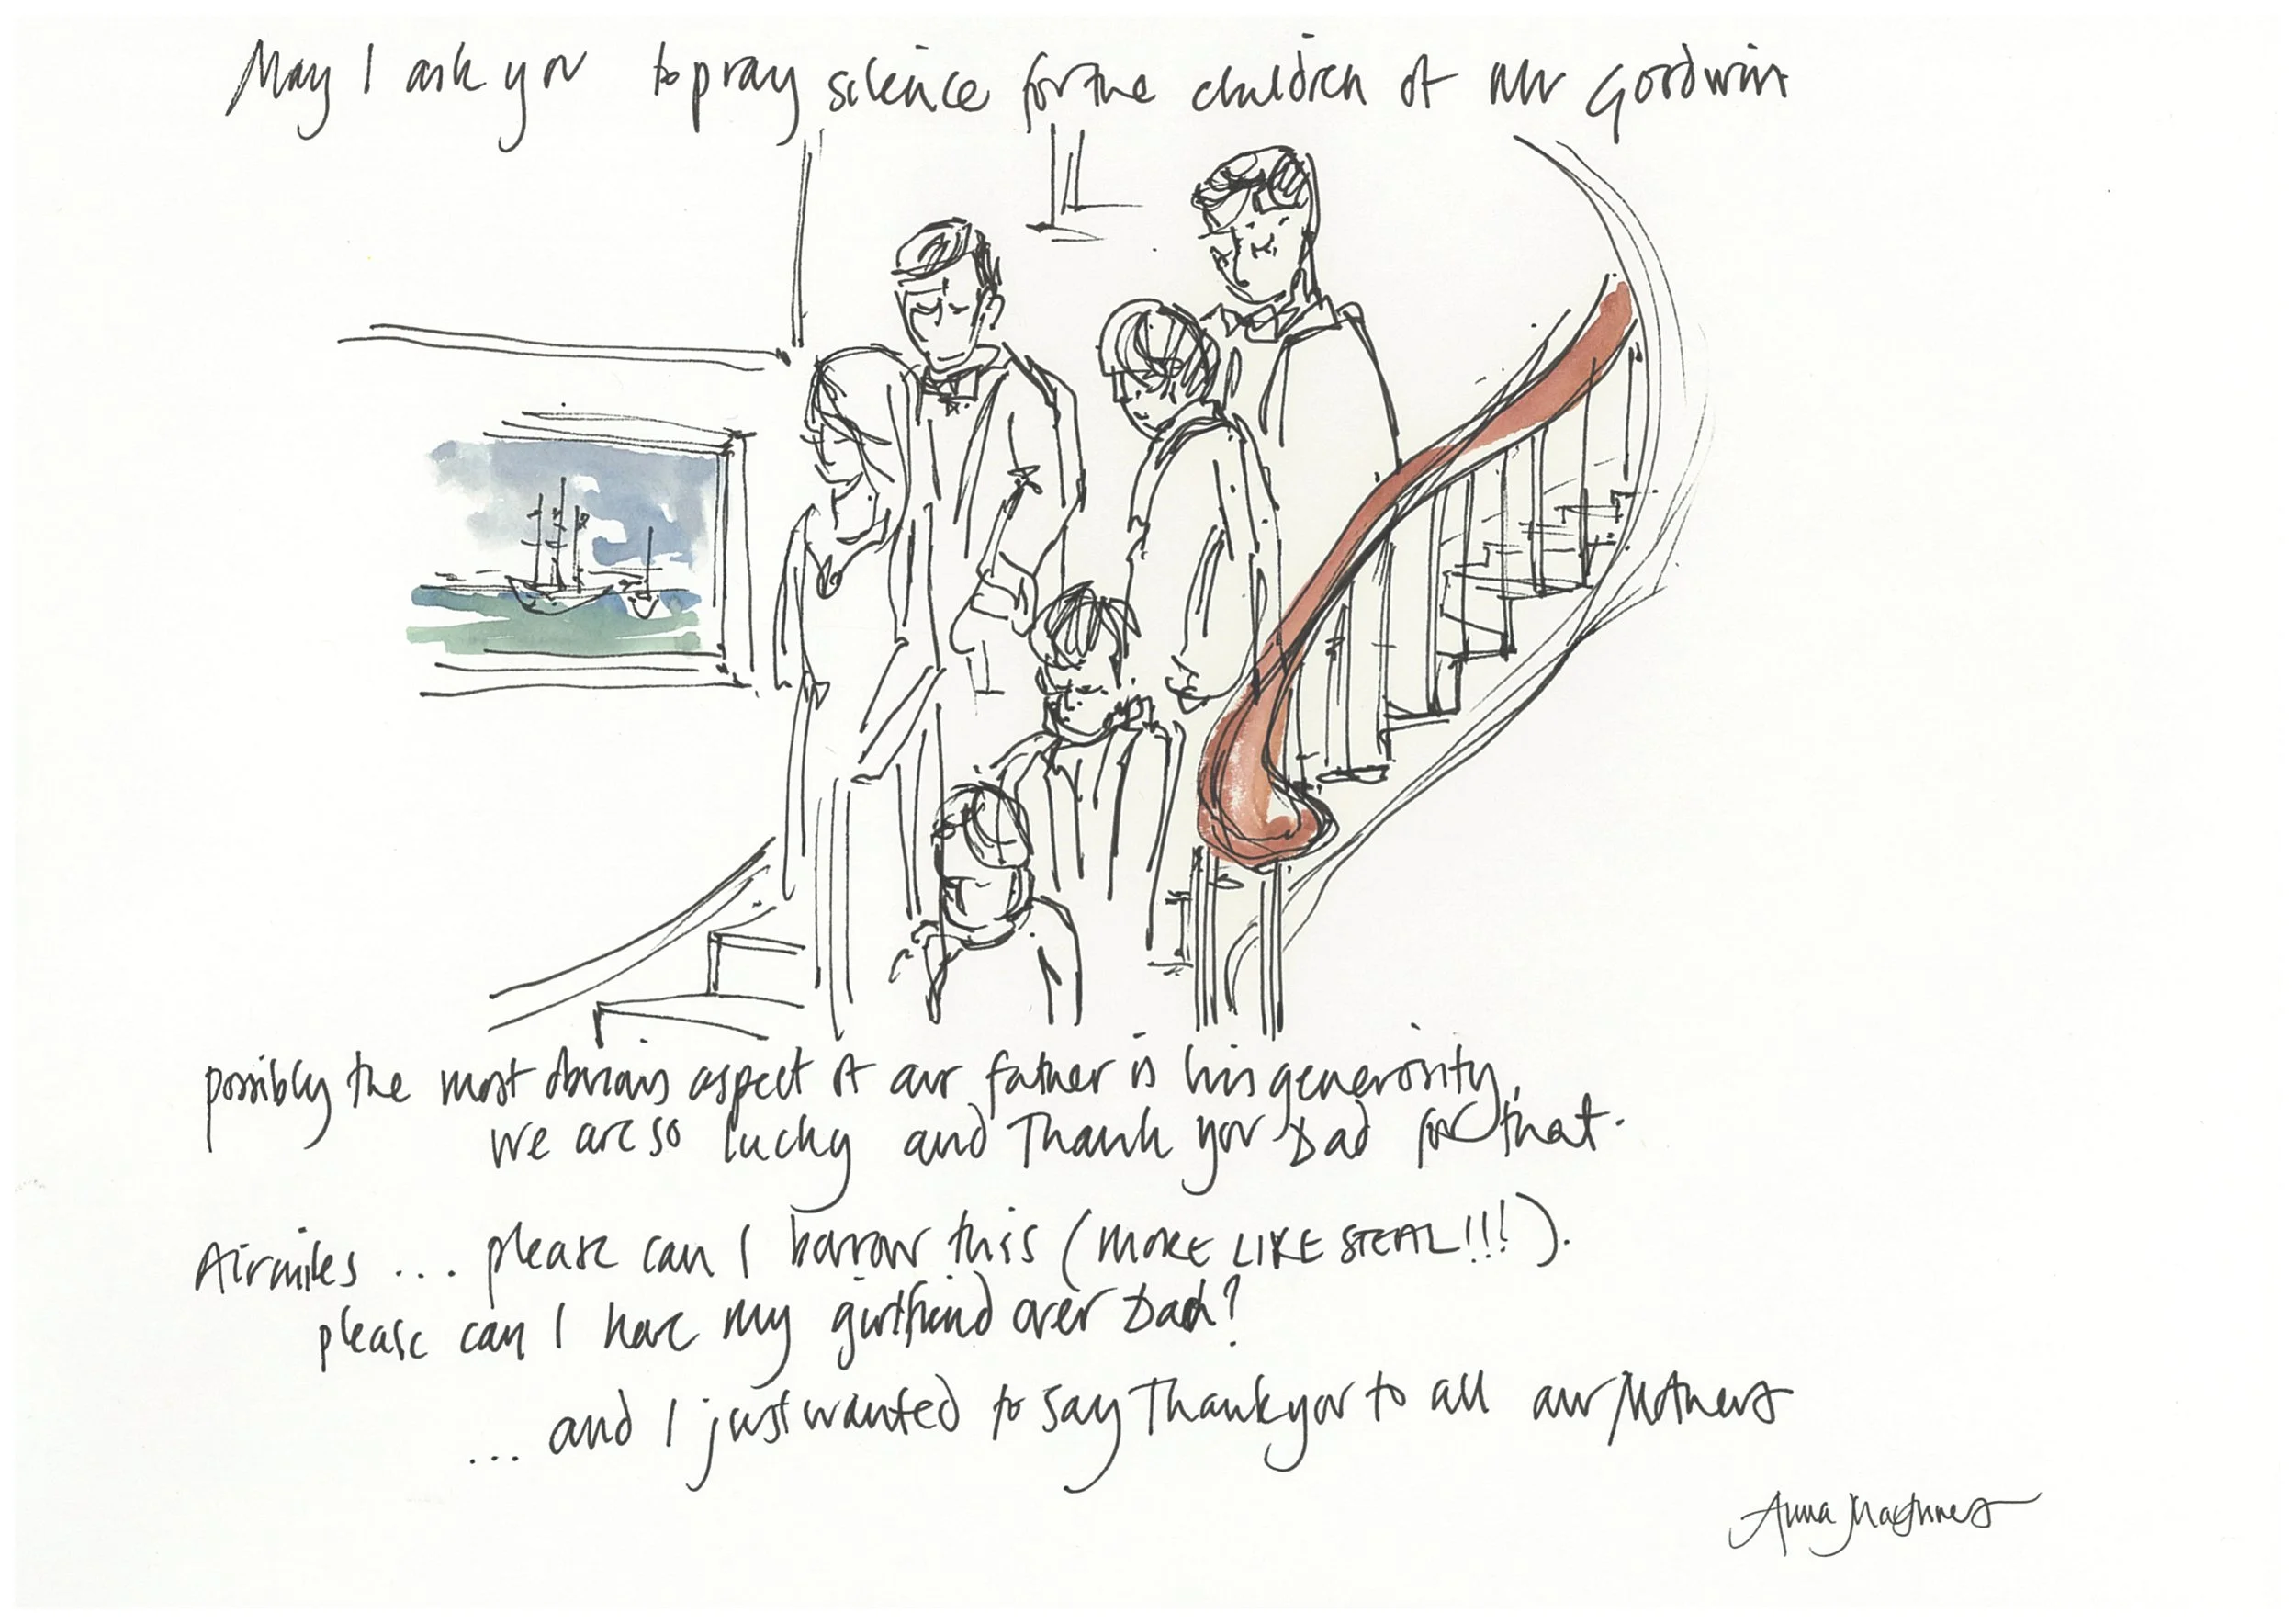 May I ask you to pray silence for the children of Mr Goodwin
possibly the most obvious aspect of our father is his generosity,
we are so lucky and Thank you Dad for that.
Airmiles ... please can I borrow this (MORE LIKE STEAL!!!).
please can I have my girlfriend over Dad?
... and I just wanted to say Thankyou to all our Mothers
Anna